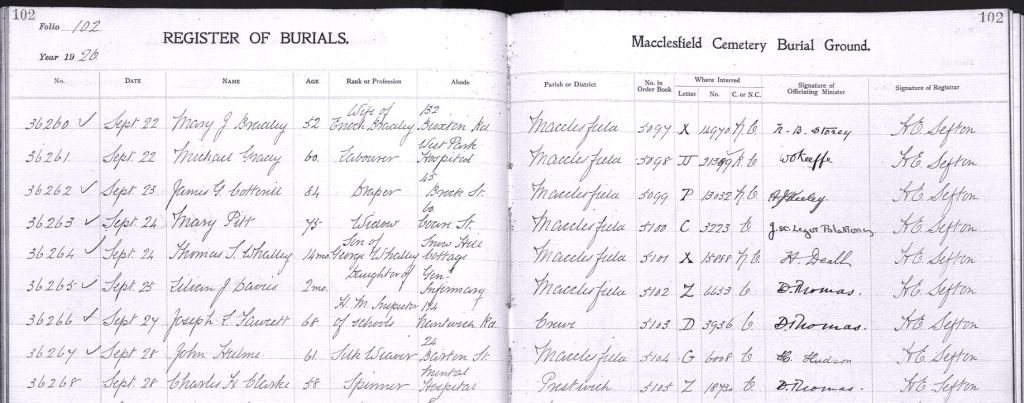 102
Folio 102
Year 1920
REGISTER OF BURIALS.
Macclesfield Cemetery Burial Ground.
102
No. DATE NAME AGE Rank or Profession Abode Parish or District No. in Order Book Where Interred Letter No. C. or N.C. Signature of Officiating Minister Signature of Registrar
Wife of 132
36260 Sept 22 Mary J Bradley 52 Enoch Bradley Buxton Rd Macclesfield 5097 X 14970 N.C. N. B. Storey H.E. Sefton
West Park
36261 Sept 22 Michael 60 Labourer Hospital Macclesfield 5098 W O'Keeffe H.E. Sefton
45
36262 Sept 23 James G Cotterill 84 Draper Brock St. Macclesfield 5099 P 13032 N.C. H.E. Sefton
60
36263 Sept 24 Mary Pitt 75 Widow St. Macclesfield 5100 C 3223 C J. St. Leger H.E. Sefton
Son of Snow Hill
36264 Sept 24 Thomas S. Whalley 14mo George Whalley Cottage Macclesfield 5101 X 15888 N.C. H.E. Sefton
Daughter of Gen.
36265 Sept 25 Lilian J Davies 2mo. Infirmary Macclesfield 5102 Z 6653 C D. Thomas. H.E. Sefton
H.M. Inspector 194
36266 Sept 27 Joseph F Fawcett 68 of schools Nantwich Rd Crewe 5103 D 3936 C D. Thomas. H.E. Sefton
24
36267 Sept 28 John Hulme 61 Silk Weaver Barton St. Macclesfield 5104 G 6008 C Hudson H.E. Sefton
Mental
36268 Sept 28 Charles H Clarke 58 Spinner Hospital Prestwich 5105 Z C D. Thomas. H.E. Sefton